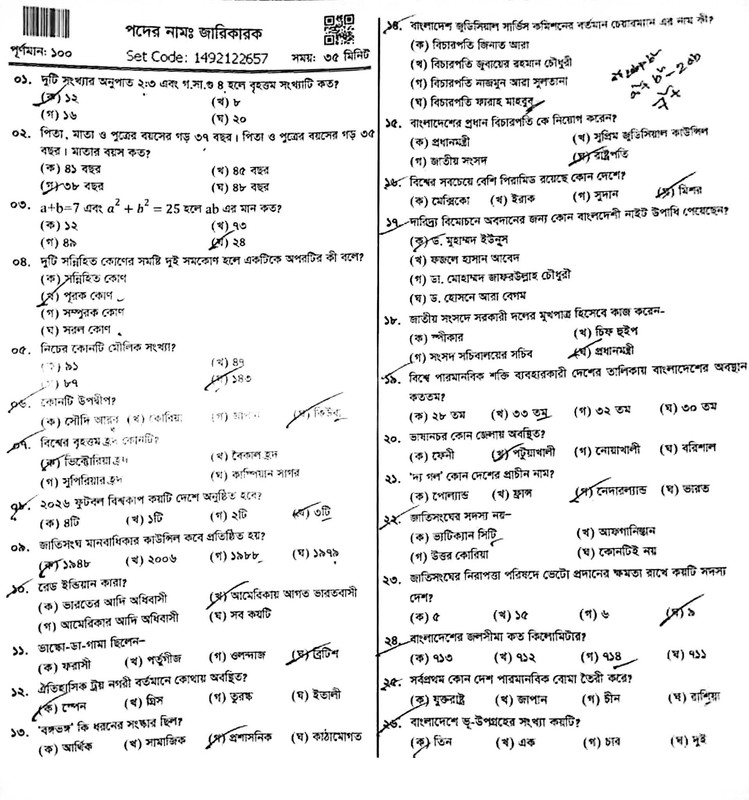 পদের নামঃ জারিকারক
পূর্ণমান: ১০০
Set Code: 1492122657
সময়: ৩৫ মিনিট
০১. দুটি সংখ্যার অনুপাত ২:৩ এবং গ.সা.গু ৪ হলে বৃহত্তম সংখ্যাটি কত?
(ক) ১২ (খ) ৮
(গ) ১৬ (ঘ) ২০
০২. পিতা, মাতা ও পুত্রের বয়সের গড় ৩৭ বছর। পিতা ও পুত্রের বয়সের গড় ৩৫
বছর। মাতার বয়স কত?
(ক) ৪১ বছর (খ) ৪৫ বছর
(গ) ৩৮ বছর (ঘ) ৪৮ বছর
০৩. a+b=7 এবং a² + b² = 25 হলে ab এর মান কত?
(ক) ১২ (খ) ৭৩
(গ) ৪৯ (ঘ) ২৪
০৪. দুটি সন্নিহিত কোণের সমষ্টি দুই সমকোণ হলে একটিকে অপরটির কী বলে?
(ক) সন্নিহিত কোণ
(খ) পূরক কোণ
(গ) সম্পূরক কোণ
(ঘ) সরল কোণ
০৫. নিচের কোনটি মৌলিক সংখ্যা?
৯১ (খ) ৪৭
৮৭ (ঘ) ১৪৩
০৬. কোনটি উপদ্বীপ?
(ক) সৌদি আরব (খ) কোরিয়া (গ) জাপান (ঘ) কিউবা
০৭. বিশ্বের বৃহত্তম হ্রদ কোনটি?
(ক) ভিক্টোরিয়া হ্রদ (খ) বৈকাল হ্রদ
(গ) সুপিরিয়ার হ্রদ (ঘ) কাস্পিয়ান সাগর
০৮. ২০২৬ ফুটবল বিশ্বকাপ কয়টি দেশে অনুষ্ঠিত হবে?
(ক) ৪টি (খ) ১টি (গ) ২টি (ঘ) ৩টি
০৯. জাতিসংঘ মানবাধিকার কাউন্সিল কবে প্রতিষ্ঠিত হয়?
(ক) ১৯৪৮ (খ) ২০০৬ (গ) ১৯৮৮ (ঘ) ১৯৭৯
১০. রেড ইন্ডিয়ান কারা?
(ক) ভারতের আদি অধিবাসী (খ) আমেরিকায় আগত ভারতবাসী
(গ) আমেরিকার আদি অধিবাসী (ঘ) সব কয়টি
১১. ভাস্কো-ডা-গামা ছিলেন–
(ক) ফরাসী (খ) পর্তুগীজ (গ) ওলন্দাজ (ঘ) ব্রিটিশ
১২. ঐতিহাসিক ট্রয় নগরী বর্তমানে কোথায় অবস্থিত?
(ক) স্পেন (খ) গ্রিস (গ) তুরস্ক (ঘ) ইতালী
১৩. ‘বঙ্গভঙ্গ’ কি ধরনের সংস্কার ছিল?
(ক) আর্থিক (খ) সামাজিক (গ) প্রশাসনিক (ঘ) কাঠামোগত
১৪. বাংলাদেশ জুডিসিয়াল সার্ভিস কমিশনের বর্তমান চেয়ারম্যান এর নাম কী?
(ক) বিচারপতি জিনাত আরা
(খ) বিচারপতি জুবায়ের রহমান চৌধুরী
(গ) বিচারপতি নাজমুন আরা সুলতানা
(ঘ) বিচারপতি ফারাহ মাহবুব
১৫. বাংলাদেশের প্রধান বিচারপতি কে নিয়োগ করেন?
(ক) প্রধানমন্ত্রী (খ) সুপ্রিম জুডিসিয়াল কাউন্সিল
(গ) জাতীয় সংসদ (ঘ) রাষ্ট্রপতি
১৬. বিশ্বের সবচেয়ে বেশি পিরামিড রয়েছে কোন দেশে?
(ক) মেক্সিকো (খ) ইরাক (গ) সুদান (ঘ) মিশর
১৭. দারিদ্র্য বিমোচনে অবদানের জন্য কোন বাংলাদেশী নাইট উপাধি পেয়েছেন?
(ক) ড. মুহাম্মদ ইউনুস
(খ) ফজলে হাসান আবেদ
(গ) ডা. মোহাম্মদ জাফরউল্লাহ চৌধুরী
(ঘ) ড. হোসনে আরা বেগম
১৮. জাতীয় সংসদে সরকারী দলের মুখপাত্র হিসেবে কাজ করেন–
(ক) স্পীকার (খ) চিফ হুইপ
(গ) সংসদ সচিবালয়ের সচিব (ঘ) প্রধানমন্ত্রী
১৯. বিশ্বে পারমানবিক শক্তি ব্যবহারকারী দেশের তালিকায় বাংলাদেশের অবস্থান
কততম?
(ক) ২৮ তম (খ) ৩৩ তম (গ) ৩২ তম (ঘ) ৩০ তম
২০. ভাষানচর কোন জেলায় অবস্থিত?
(ক) ফেনী (খ) পটুয়াখালী (গ) নোয়াখালী (ঘ) বরিশাল
২১. ‘দ্য গল’ কোন দেশের প্রাচীন নাম?
(ক) পোল্যান্ড (খ) ফ্রান্স (গ) নেদারল্যান্ড (ঘ) ভারত
২২. জাতিসংঘের সদস্য নয়–
(ক) ভাটিক্যান সিটি (খ) আফগানিস্তান
(গ) উত্তর কোরিয়া (ঘ) কোনটিই নয়
২৩. জাতিসংঘের নিরাপত্তা পরিষদে ভেটো প্রদানের ক্ষমতা রাখে কয়টি সদস্য
দেশ?
(ক) ৫ (খ) ১৫ (গ) ৬ (ঘ) ৯
২৪. বাংলাদেশের জলসীমা কত কিলোমিটার?
(ক) ৭১৩ (খ) ৭১২ (গ) ৭১৪ (ঘ) ৭১১
২৫. সর্বপ্রথম কোন দেশ পারমানবিক বোমা তৈরী করে?
(ক) যুক্তরাষ্ট্র (খ) জাপান (গ) চীন (ঘ) রাশিয়া
২৬. বাংলাদেশে ভূ-উপগ্রহের সংখ্যা কয়টি?
(ক) তিন (খ) এক (গ) চার (ঘ) দুই